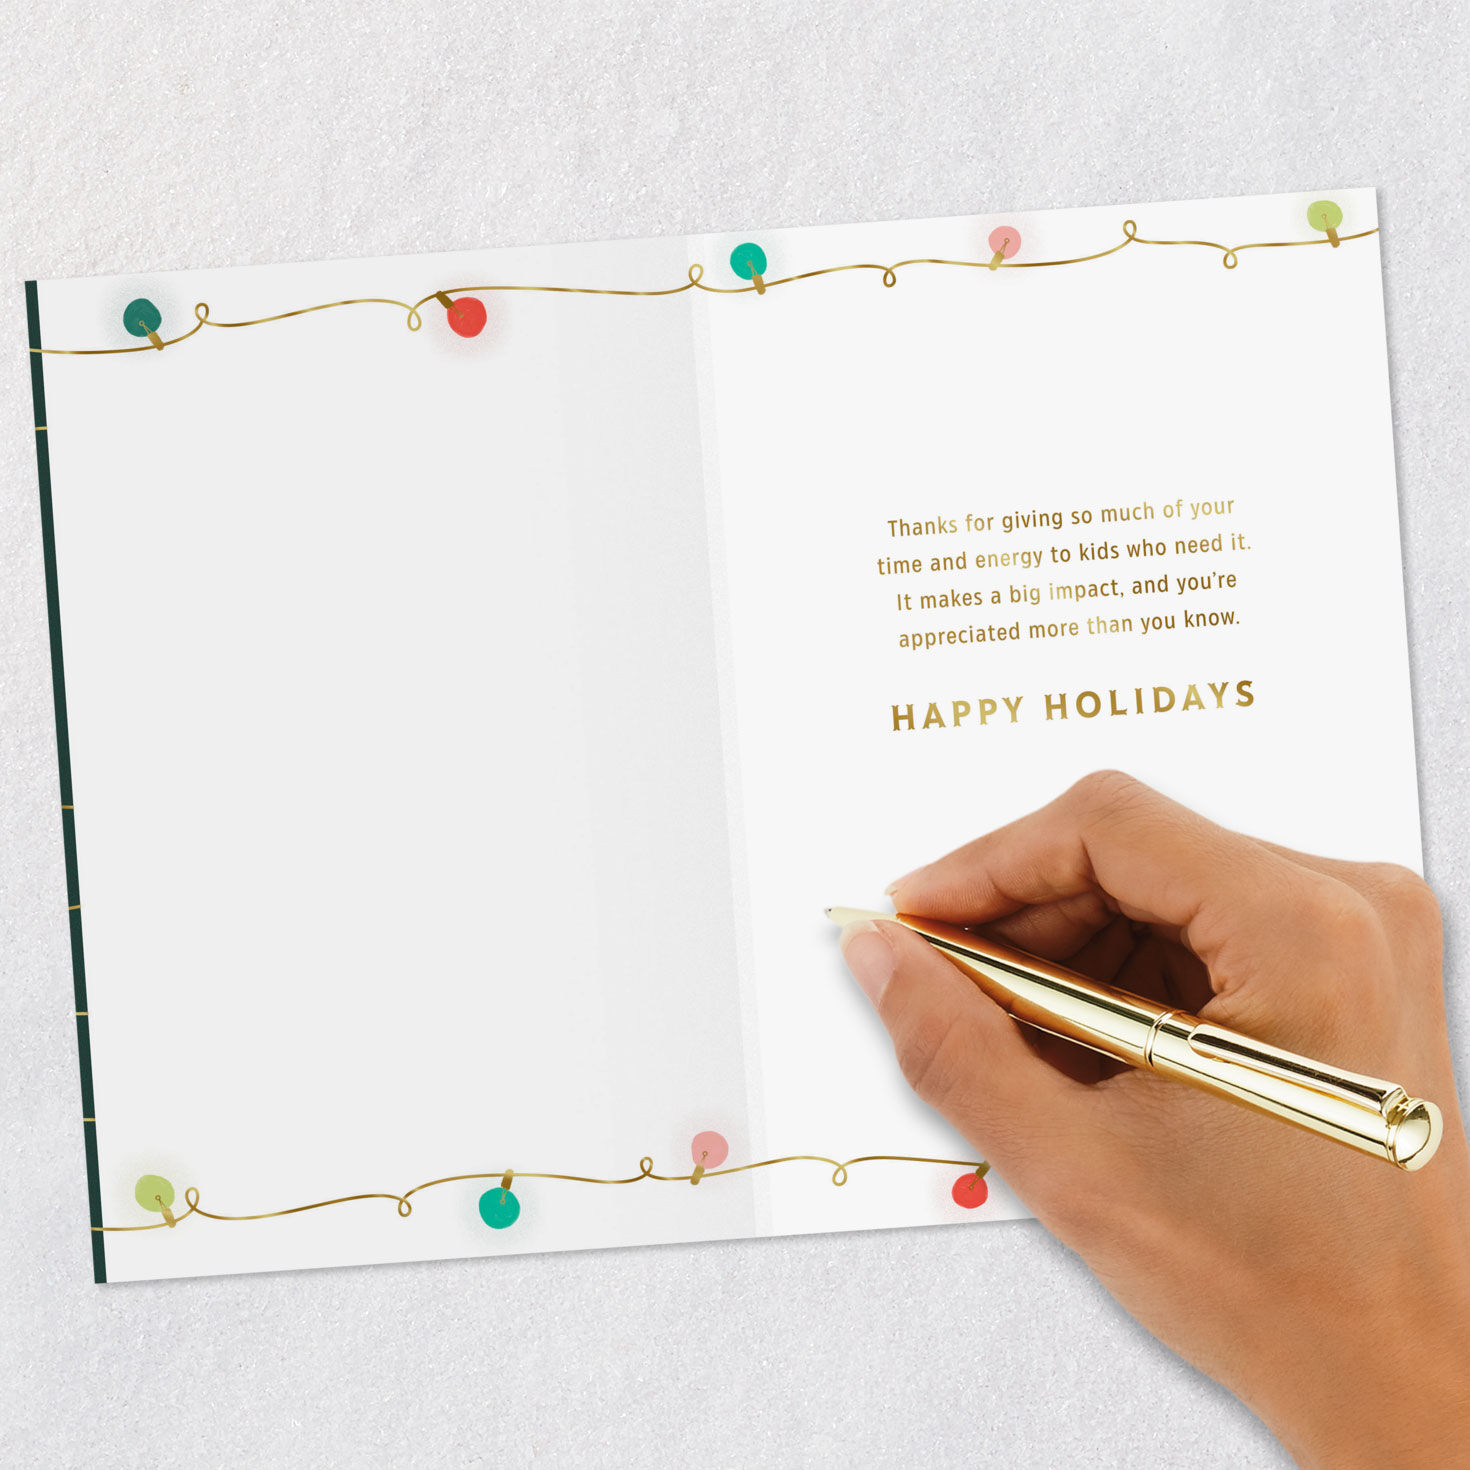 Thanks for giving so much of your
time and energy to kids who need it.
It makes a big impact, and you’re
appreciated more than you know.
HAPPY HOLIDAYS